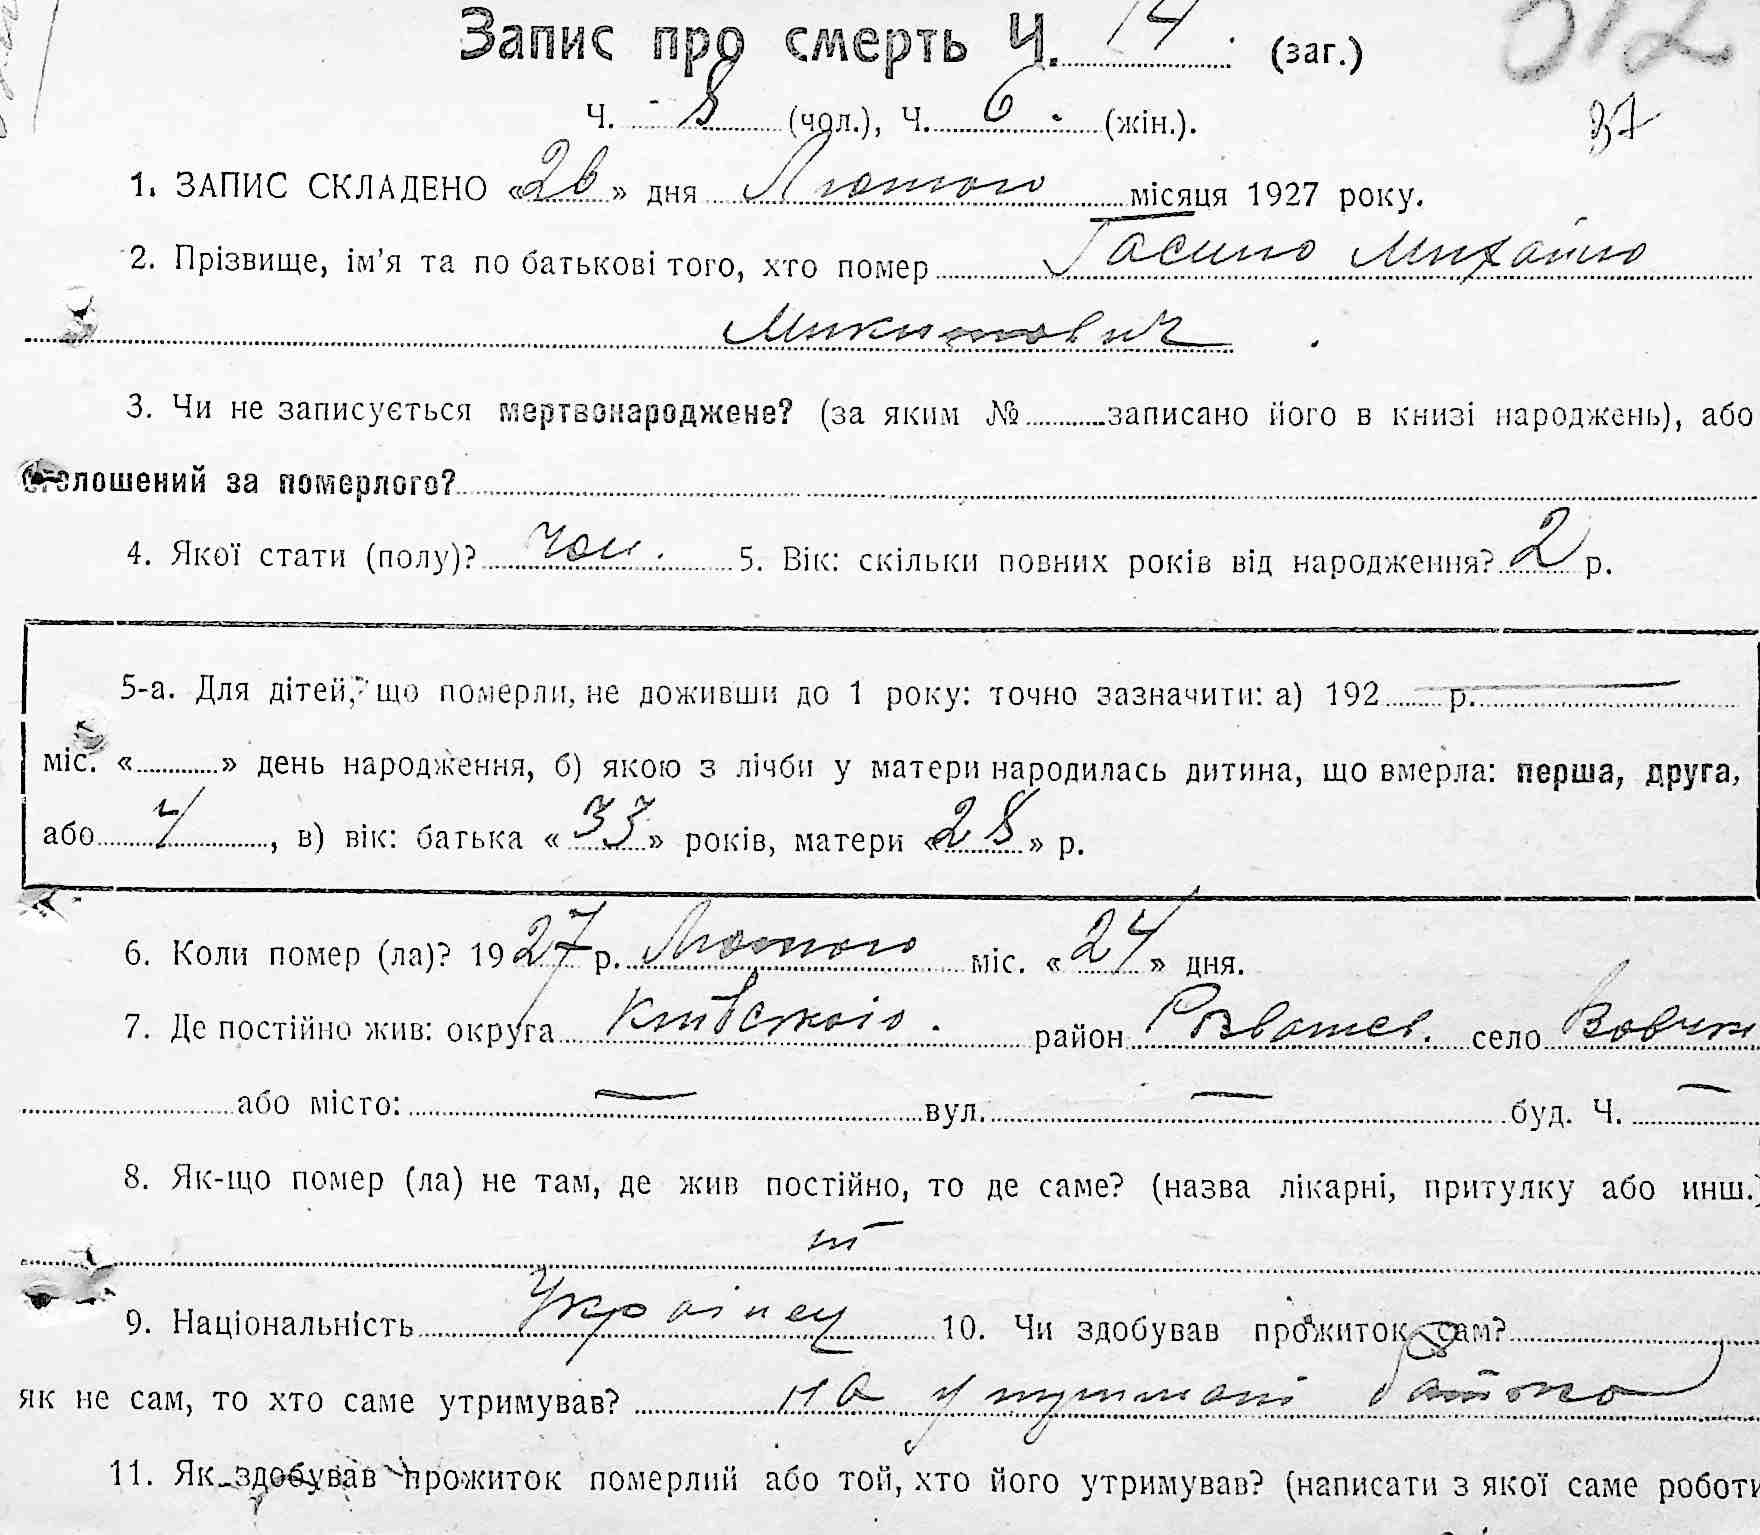 Запис про смерть Ч. 14 (заг.)
012
Ч. 8 (чол.), Ч. 6 (жін.).
37
1. ЗАПИС СКЛАДЕНО «26» дня Лютого місяця 1927 року.
2. Прізвище, ім'я та по батькові того, хто помер Гасило Михайло
Микитович
3. Чи не записується мертвонароджене? (за яким № записано його в книзі народжень), або
оголошений за померлого?
4. Якої стати (полу)? чол. 5. Вік: скільки повних років від народження? 2 р.
5-а. Для дітей, що померли, не доживши до 1 року: точно зазначити: а) 192 р.
міс. « » день народження, б) якою з лічби у матери народилась дитина, що вмерла: перша, друга,
або 4, в) вік: батька «33» років, матери «28» р.
6. Коли помер (ла)? 1927 р. Лютого міс. «24» дня.
7. Де постійно жив: округа Київського. район Розважев. село Вовчків
або місто: — вул. — буд. Ч. —
8. Як-що помер (ла) не там, де жив постійно, то де саме? (назва лікарні, притулку або инш.)
9. Національність Українец 10. Чи здобував прожиток сам?
як не сам, то хто саме утримував? на утриманi батька
11. Як здобував прожиток померлий або той, хто його утримував? (написати з якої саме роботи